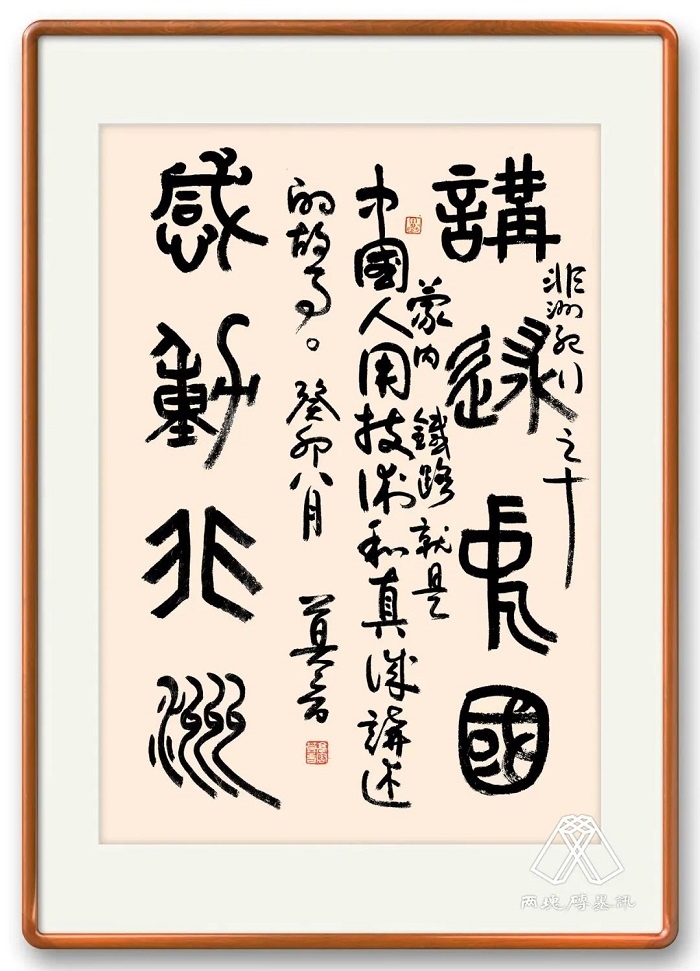 講述國
非洲紀行之十
蒙内鐵路就是
中國人用技術和真誠講述
的故事。癸卯八月 莫言
感動非洲
两塊磚墨訊